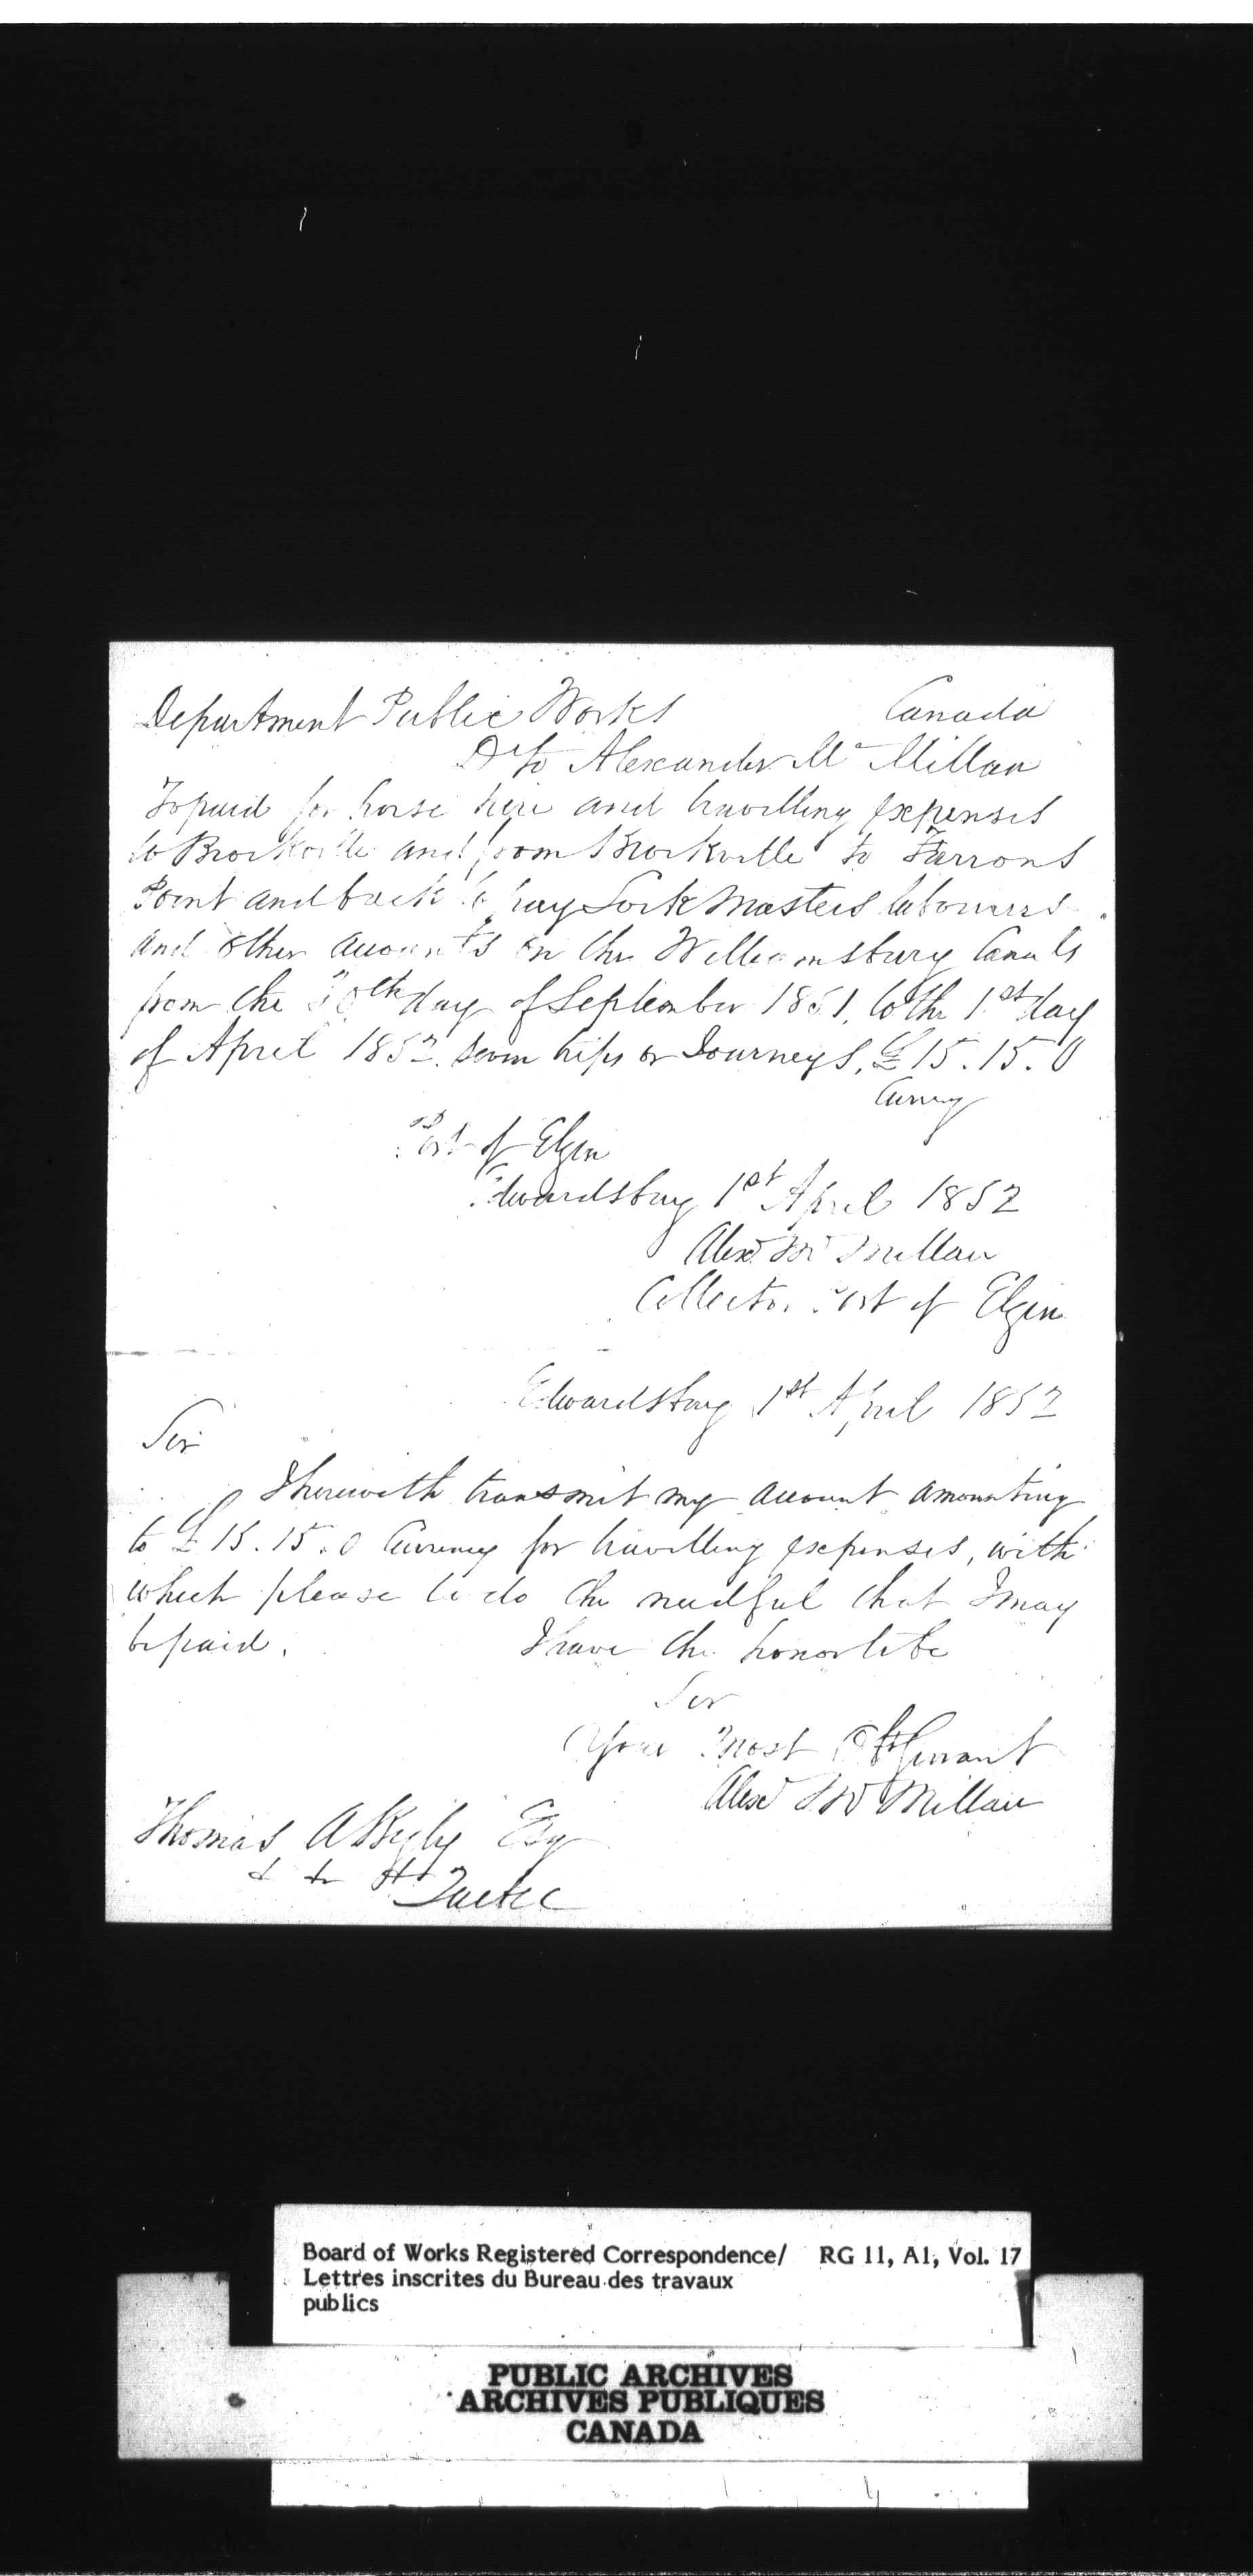 Department Public Works Canada
Dr to Alexander Mc Millan
To paid for horse hire and travilling expenses
to Brockville and from Brockville to Farrons
Point and back to pay Lock Masters labourers
and other accounts on the Williamsbury Canals
from the 30th day of September 1851, to the 1st day
of April 1852. seven trips or Journeys, £15.15.0
Curncy
Port of Elgin
Edwardsburg 1st April 1852
Alexr Mc Millan
Collector Port of Elgin
Edwardsburg 1st April 1852
Sir
I herewith transmit my account amounting
to £15.15.0 Currency for travilling expenses, with
which please to do the needful that I may
be paid. I have the honor to be
Sir
Your Most Obt Servant
Alexr Mc Millan
Thomas A Begly Esq
Quebec
Board of Works Registered Correspondence/ RG 11, A1, Vol. 17
Lettres inscrites du Bureau des travaux
publics
PUBLIC ARCHIVES
ARCHIVES PUBLIQUES
CANADA